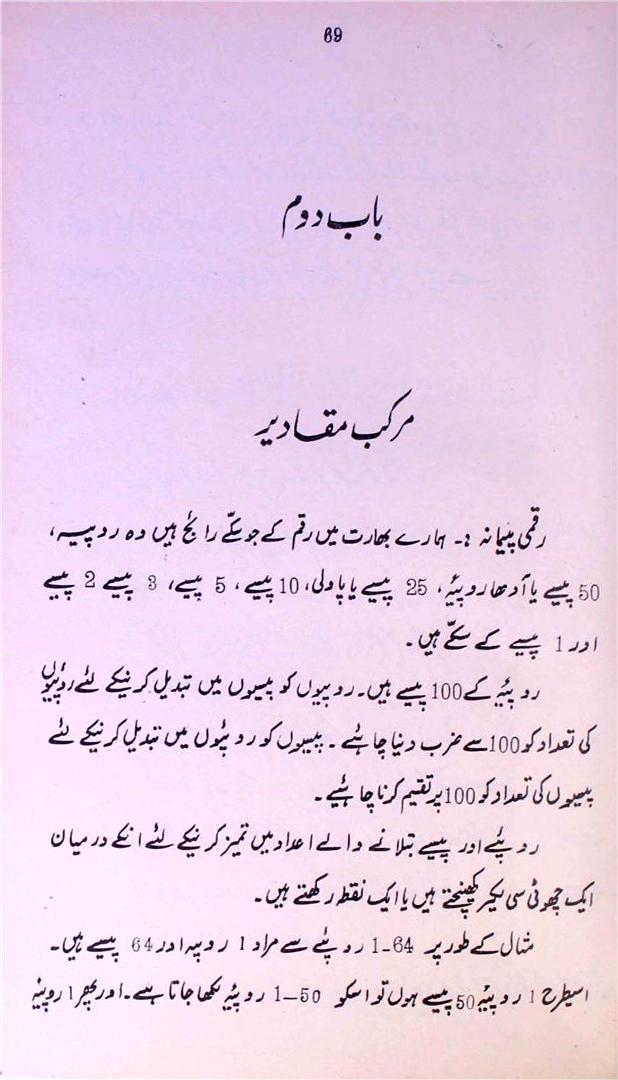 69
باب دوم
مرکب مقادیر
رقمی پیمانہ :۔ ہمارے بھارت میں رقم کے جو سکّے رائج ہیں وہ روپیہ،
50 پیسے یا آدھا روپیٔہ، 25 پیسے یا پاولی، 10 پیسے، 5 پیسے، 3 پیسے 2 پیسے
اور 1 پیسے کے سکّے ہیں۔
روپئے کے 100 پیسے ہیں۔ روپیوں کو پیسوں میں تبدیل کرنیکے لئے روپئیوں
کی تعداد کو 100 سے ضرب دنیا چاہئے۔ پیسوں کو روپئوں میں تبدیل کرنیکے لئے
پیسوں کی تعداد کو 100 پر تقسیم کرنا چاہئیے۔
روپئے اور پیسے بتلانے والے اعداد میں تمیز کرنیکے لئے انکے درمیان
ایک چھوٹی سی لکیر کھینچتے ہیں یا ایک نقطہ رکھتے ہیں۔
مثال کے طور پر 64-1 روپئے سے مراد 1 روپیہ اور 64 پیسے ہیں۔
اسیطرح 1 روپیٔہ 50 پیسے ہوں تو اسکو 50—1 روپیٔے لکھا جاتا ہے۔ اور پھر 1 روپیٔہ